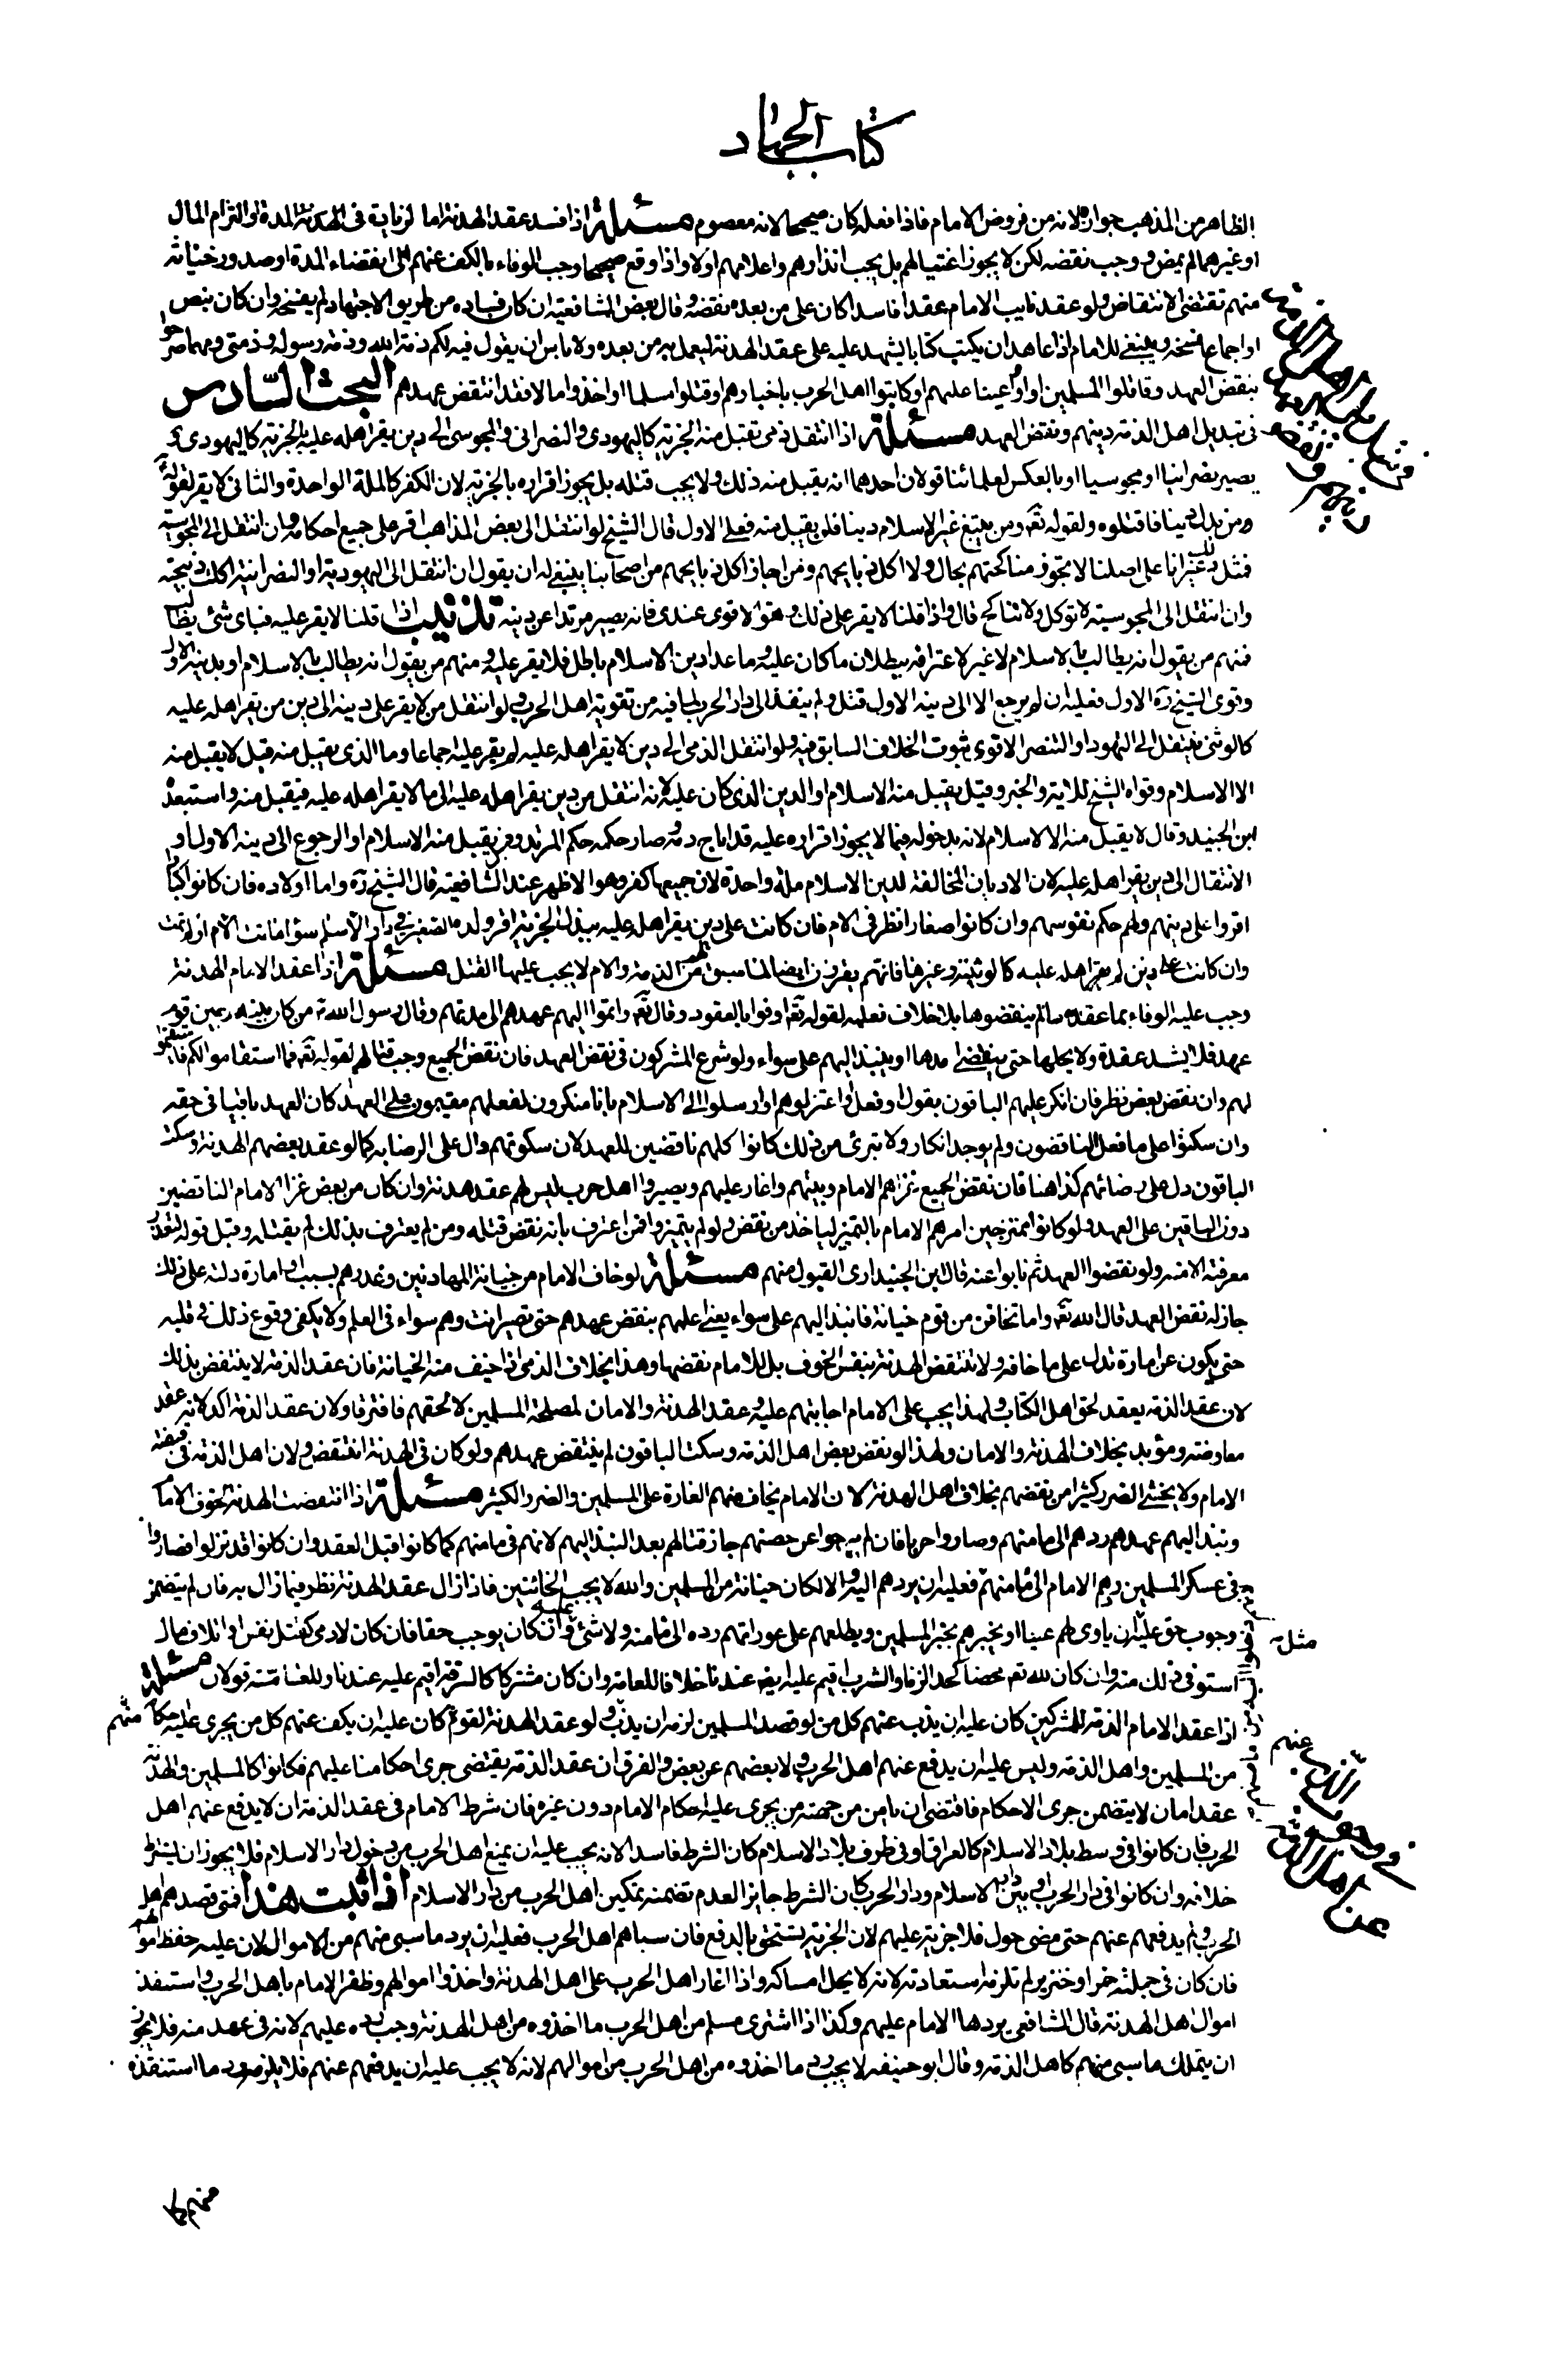 كتاب الجهاد
الظاهر من المذهب جوازه لانه من فروض الامام فاذا فعله كان صحيحا لانه معصوم مسئلة اذا فسد عقد الهدنة اما لزيادة فى المدة او التزام المال
او غيرهما لم يمض ووجب نقضه لكن لا يجوز اغتيالهم بل يجب انذارهم واعلامهم اولا واذا وقع صحيحا وجب الوفاء بالكف عنهم الى انقضاء المدة او صدور خيانة
منهم تقتضى الانتقاض ولو عقد نايب الامام عقدا فاسدا كان على من بعده نقضه وقال بعض الشافعية ان كان فساده من طريق الاجتهاد لم يفسخه وان كان بنص
او اجماع فسخه وينبغى للامام اذا عاهد ان يكتب كتابا يشهد عليه على عقد الهدنة ليعمل به من بعده ولا باس ان يقول فيه لكم ذمة الله وذمة رسوله وذمتى ومهما صرحوا
بنقض العهد وقاتلوا المسلمين او اووا عينا عليهم او كاتبوا اهل الحرب باخبارهم او قتلوا مسلما او اخذوا مالا فقد انتقض عهدهم البحث السادس
فى تبديل اهل الذمة دينهم ونقض العهد مسئلة اذا انتقل ذمى تقبل منه الجزية كاليهودى والنصرانى والمجوسى الى دين يقر اهله عليه بالجزية كاليهودى
يصير نصرانيا او مجوسيا او بالعكس لعلمائنا قولان احدهما انه يقبل منه ذلك ولا يجب قتله بل يجوز اقراره بالجزية لان الكفر كالملة الواحدة والثانى لا يقر لقوله
ومن بدل دينه فاقتلوه ولقوله تعه ومن يبتغ غير الاسلام دينا فلن يقبل منه فعلى الاول قال الشيخ لو انتقل الى بعض المذاهب اقر على جميع احكامه وان انتقل الى المجوسية
فمثل ذلك غير انا على اصلنا لا تجوز مناكحتهم بحال ولا اكل ذبايحهم ومن اجاز اكل ذبايحهم من اصحابنا ينبغى له ان يقول ان انتقل الى اليهودية او النصرانية اكلت ذبيحته
وان انتقل الى المجوسية لا توكل ولا تناكح قال واذا قلنا لا يقر على ذلك وهو الاقوى عندى فانه يصير مرتدا عن دينه تذنيب اذا قلنا لا يقر عليه فباى شئ يطالب
فمنهم من يقول انه يطالب بالاسلام لا غير لاعترافه ببطلان ما كان عليه وما عدا دين الاسلام باطل فلا يقر عليه ومنهم من يقول انه يطالب بالاسلام او بدينه الاول
وقوى الشيخ ره الاول فعليه ان لم يرجع الا الى دينه الاول قتل ولم ينفذ الى دار الحرب لما فيه من تقوية اهل الحرب ولو انتقل من لا يقر على دينه الى دين من يقر اهله عليه
كالوثنى ينتقل الى التهود او التنصر الاقوى ثبوت الخلاف السابق فيه ولو انتقل الذمى الى دين لا يقر اهله عليه لم يقر عليه اجماعا وما الذى يقبل منه قيل لا يقبل منه
الا الاسلام وقواه الشيخ للاية والخبر وقيل يقبل منه الاسلام او الدين الذى كان عليه لانه انتقل من دين يقر اهله عليه الى ما لا يقر اهله عليه فيقبل منه واستبعده
ابن الجنيد وقال لا يقبل منه الا الاسلام لانه بدخوله فيما لا يجوز اقراره عليه قد اباح دمه وصار حكمه حكم المرتد وقيل يقبل منه الاسلام او الرجوع الى دينه الاول او
الانتقال الى دين يقر اهله عليه لان الاديان المخالفة لدين الاسلام ملة واحدة لان جميعها كفر وهو الاظهر عند الشافعية قال الشيخ ره واما اولاده فان كانوا كبارا
اقروا على دينهم ولهم حكم نفوسهم وان كانوا صغارا نظر فى الام فان كانت على دين يقر اهله عليه ببذل الجزية اقر ولده الصغير فى دار الاسلام سواء ماتت الام او لم تمت
وان كانت على دين لم يقر اهله عليه كالوثنية وغيرها فانهم يقرون ايضا لما سبق لهم من الذمة والام لا يجب عليها القتل مسئلة اذا عقد الامام الهدنة
وجب عليه الوفاء بما عقده ما لم ينقضوها بلا خلاف نعلمه لقوله تعه اوفوا بالعقود وقال تعه واتموا اليهم عهدهم الى مدتهم وقال رسول الله ص من كان بينه وبين قوم
عهد فلا يشد عقدة ولا يحلها حتى ينقضى مدها او ينبذ اليهم على سواء ولو شرع المشركون فى نقض العهد فان نقض الجميع وجب قتالهم لقوله تعه فما استقاموا لكم فاستقيموا
لهم وان نقض بعض نظر فان انكر عليهم الباقون بقول او فعل او اعتزلوهم او ارسلوا الى الامام بانا منكرون لفعلهم مقيمون على العهد كان العهد باقيا فى حقه
وان سكتوا على ما فعل الناقضون ولم يوجد انكار ولا تبرئ من ذلك كانوا كلهم ناقضين للعهد لان سكوتهم دال على الرضا به كما لو عقد بعضهم الهدنة وسكت
الباقون دل على رضائهم كذا هنا فان نقض الجميع غزاهم الامام وبيتهم واغار عليهم ويصيروا اهل حرب ليس لهم عقد هدنة وان كان من بعض غزا الامام الناقضين
دون الباقين على العهد ولو كانوا ممتزجين امرهم الامام بالتميز لياخذ من نقض ولو لم يتميزوا فمن اعترف بانه نقض قتله ومن لم يعترف بذلك لم يقتله وقبل قوله لتعذر
معرفته الا منه ولو نقضوا العهد ثم تابوا عنه قال ابن الجنيد ارى القبول منهم مسئلة لو خاف الامام من خيانة المهادنين وغدرهم بسبب او امارة دلته على ذلك
جاز له نقض العهد قال الله تعه واما تخافن من قوم خيانة فانبذ اليهم على سواء يعنى اعلمهم بنقض عهدهم حتى تصير انت وهم سواء فى العلم ولا يكفى وقوع ذلك فى قلبه
حتى يكون عن امارة تدل على ما خافه ولا تنتقض الهدنة بنفس الخوف بل للامام نقضها وهذا بخلاف الذمى اذا خيف منه الخيانة فان عقد الذمة لا ينتقض بذلك
لان عقد الذمة يعقد لحق اهل الكتاب ولهذا يجب على الامام اجابتهم عليه وعقد الهدنة والامان لمصلحة المسلمين لا لحقهم فافترقا ولان عقد الذمة اكد لانه عقد
معاوضة ومؤبد بخلاف الهدنة والامان ولهذا لو نقض بعض اهل الذمة وسكت الباقون لم ينتقض عهدهم ولو كان فى الهدنة انتقض ولان اهل الذمة فى قبضة
الامام ولا يخشى الضرر كثيرا من نقضهم بخلاف اهل الهدنة لان الامام يخاف منهم الغارة على المسلمين والضرر الكثير مسئلة اذا انتقضت الهدنة لخوف الامام
ونبذ اليهم عهدهم ردهم الى مامنهم وصاروا حربا فان لم يبرحوا عن حصنهم جاز قتالهم بعد النبذ اليهم لانهم فى مامنهم كما كانوا قبل العقد وان كانوا قد نزلوا فصاروا
فى عسكر المسلمين ردهم الامام الى مامنهم فعليه ان يردهم اليه والا لكان خيانة من المسلمين والله لا يحب الخائنين فاذا زال عقد الهدنة نظر فيما زال به فان لم يتضمن
وجوب حق عليه ان ياوى لهم عينا او يخبرهم بخبر المسلمين ويطلعهم على عوراتهم رده الى مامنه ولا شئ عليه وان كان يوجب حقا فان كان لادمى كقتل نفس او اتلاف مال
استوفى ذلك منه وان كان لله تعه محضا كحد الزنا والشرب اقيم عليه ايض عندنا خلافا للعامة وان كان مشتركا كالسرقة اقيم عليه عندنا وللعامة قولان مسئلة
اذا عقد الامام الذمة للمشركين كان عليه ان يذب عنهم كل من لو قصد المسلمين لزمه ان يذب ولو عقد الهدنة لقوم كان عليه ان يكف عنهم كل من يجرى عليه احكامنا
من المسلمين واهل الذمة وليس عليه ان يدفع عنهم اهل الحرب ولا بعضهم عن بعض والفرق ان عقد الذمة يقتضى جرى احكامنا عليهم فكانوا كالمسلمين والهدنة
عقد امان لا يتضمن جرى الاحكام فاقتضى ان يامن من جهته من يجرى عليه احكام الامام دون غيره فان شرط الامام فى عقد الذمة ان لا يدفع عنهم اهل
الحرب فان كانوا فى وسط بلاد الاسلام كالعراق او فى طرف بلاد الاسلام كان الشرط فاسدا لانه يجب عليه ان يمنع اهل الحرب من دخول دار الاسلام فلا يجوز ان يشترط
خلافه وان كانوا فى دار الحرب او بين دار الاسلام ودار الحرب كان الشرط جايزا لعدم تضمنه تمكين اهل الحرب من دار الاسلام اذا ثبت هذا فمتى قصدهم اهل
الحرب ولم يدفعهم عنهم حتى مضى حول فلا جزية عليهم لان الجزية يستحق بالدفع فان سباهم اهل الحرب فعليه ان يرد ما سبى منهم من الاموال لان عليه حفظ اموالهم
فان كان فى جملته خمرا او خنزير لم تلزمه استعادته لانه لا يحل امساكه واذا اغار اهل الحرب على اهل الهدنة واخذوا اموالهم وظفر الامام باهل الحرب واستنقذ
اموال اهل الهدنة قال الشافعى يردها الامام عليهم وكذا اذا اشترى مسلم من اهل الحرب ما اخذوه من اهل الهدنة وجب رده عليهم لانه فى عهد منه فلا يجوز
ان يتملك ما سبى منهم كاهل الذمة وقال ابو حنيفة لا يجب رد ما اخذوه من اهل الحرب من اموالهم لانه لا يجب عليه ان يدفعهم عنهم فلا يلزمه رد ما استنقذه
مثل
منهم
عنهم